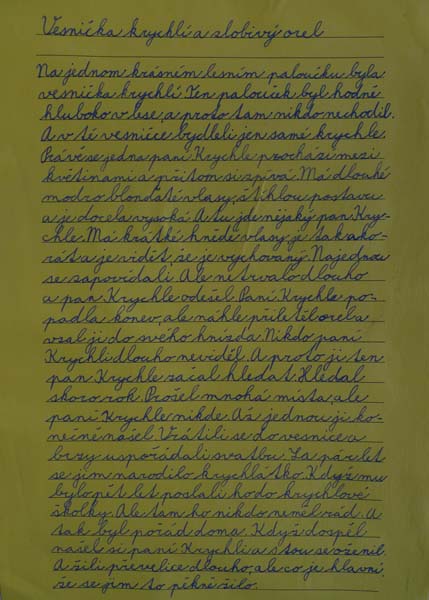 Vesnička krychlí a zlobivý orel
Na jednom krásném lesním paloučku byla
vesnička krychlí. Ten palouček byl hodně
hluboko v lese, a proto tam nikdo nechodil.
A v té vesničce bydleli jen samé krychle.
Právě se jedna paní Krychle prochází mezi
květinami a přitom si zpívá. Má dlouhé
modro blonďaté vlasy, štíhlou postavu
a je docela vysoká. A tu jde nějaký pan Kry-
chle. Má krátké hnědé vlasy, je tak ako-
rát a je vidět, že je vychovaný. Najednou
se zapovídali. Ale netrvalo dlouho
a pan Krychle odešel. Paní Krychle po-
padla konev, ale náhle přiletěl orel a
vzal ji do svého hnízda. Nikdo paní
Krychli dlouho neviděl. A proto ji ten
pan Krychle začal hledat. Hledal
skoro rok. Prošel mnohá místa, ale
paní Krychle nikde. Až jednou ji ko-
nečně našel. Vrátili se do vesnice a
brzy uspořádali svatbu. Za pár let
se jim narodilo krychlátko. Když mu
bylo pět let poslali ho do krychlové
školky. Ale tam ho nikdo neměl rád. A
tak byl pořád doma. Když dospěl
našel si paní Krychli a s tou se oženil.
A žili převelice dlouho, ale co je hlavní,
že se jim to pěkně žilo.